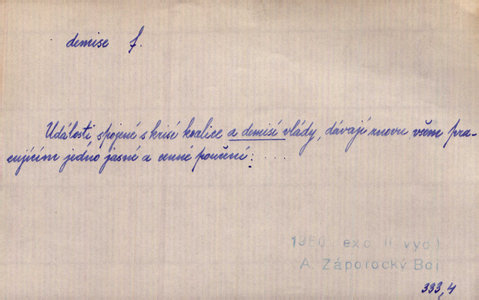 demise f.
Události, spojené s krisí koalice a demisí vlády, dávají znovu všem pra-
cujícím jedno jasné a cenné poučení: . . .
1950 exc. (I. vyd.)
A. Záporocký Boj
393,4